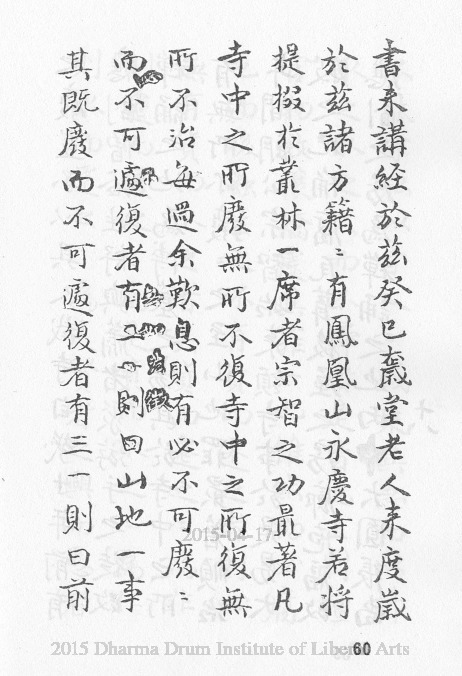 書来講經於茲癸巳堂老人来度歲
於茲諸方籍〻有鳳凰山永慶寺若将
提掇於叢林一席者宗智之功最著凡
寺中之所廢無所不復寺中之所復無
所不治每過余歎息則有必不可廢〻
而不可遽復者有一則曰山地一事
其既廢而不可遽復者有三一則曰前
2015-04-17
2015 Dharma Drum Institute of Liberal Arts
60